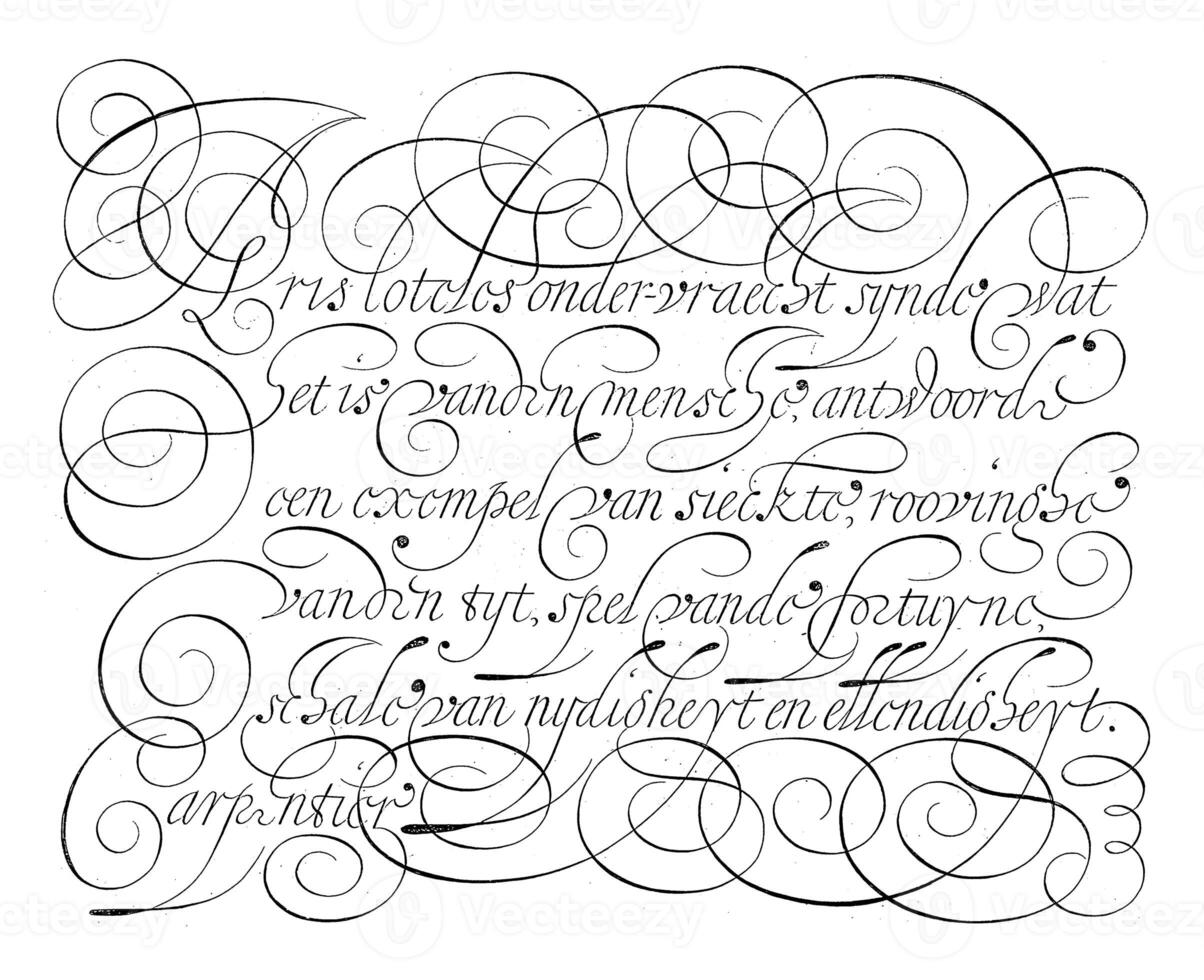 Aristoteles onder-vraecht synde wat
het is vanden mensche, antwoorde
een exempel van sieckte, roovinghe
vanden tyt, spel vande fortuyne,
schale van nydigheyt en ellendigheyt.
Carpentier
Vecteezy